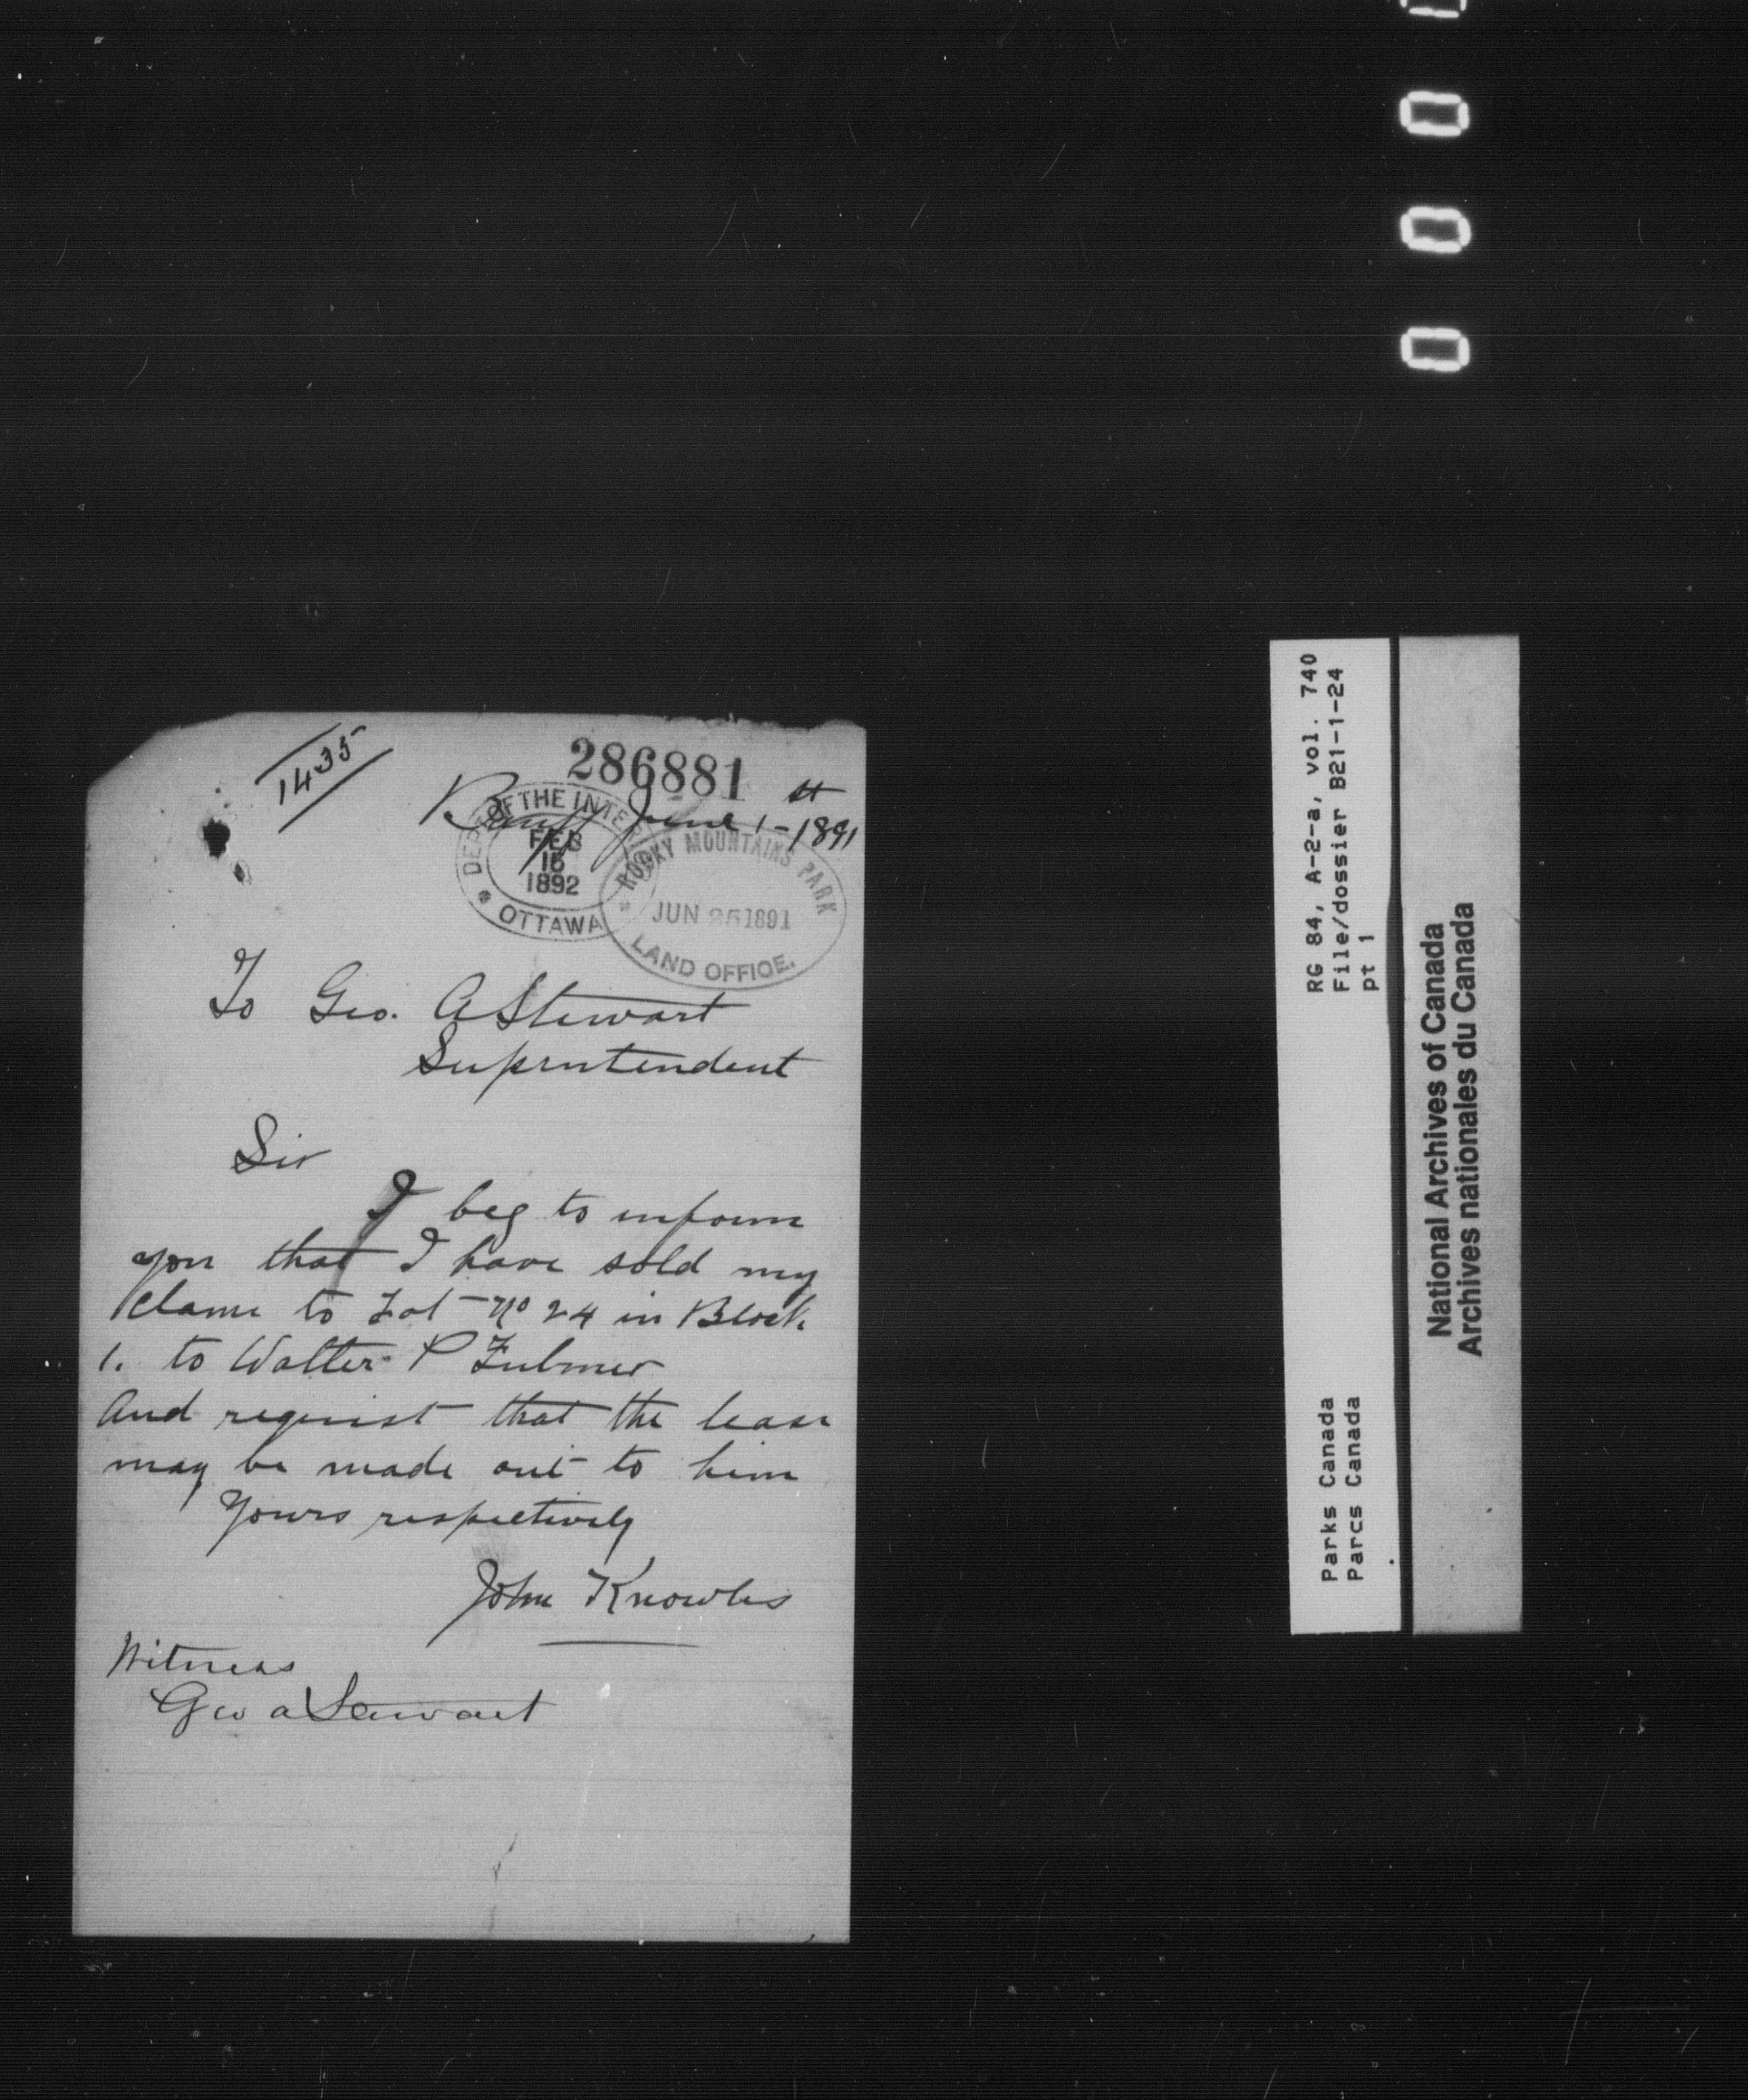 1435
286881
Banff June 1st 1891
DEPT OF THE INTERIOR
FEB
16
1892
OTTAWA
ROCKY MOUNTAINS PARK
JUN 25 1891
LAND OFFICE.
To Geo. A Stewart
Suprntendent
Sir
I beg to inform
you that I have sold my
Clame to Lot No 24 in Block
1. to Walter P Fulmer
And requist that the lease
may be made out to him
Yours respectively
John Knowles
Witness
Geo A Stewart
RG 84, A-2-a, vol. 740
File/dossier B21-1-24
pt 1
Parks Canada
Parcs Canada
National Archives of Canada
Archives nationales du Canada
0
0
0